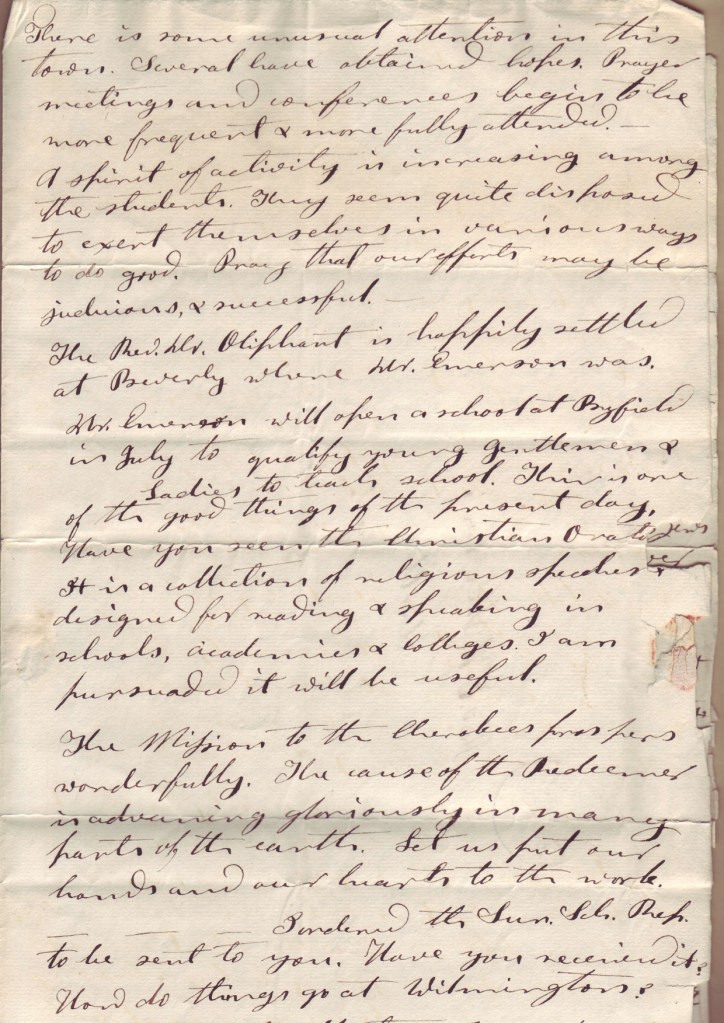 There is some unusual attention in this
town. Several have obtained hopes. Prayer
meetings and conferences begin to be
more frequent & more fully attended. —
A spirit of activity is increasing among
the students. They seem quite disposed
to exert themselves in various ways
to do good. Pray that our efforts may be
judicious, & successful. —
The Rev. Mr. Oliphant is happily settled
at Beverly where Mr. Emerson was.
Mr. Emerson will open a school at Byfield
in July to qualify young gentlemen &
Ladies to teach school. This is one
of the good things of the present day.
Have you seen the Christian Orator
It is a collection of religious speeches
designed for reading & speaking in
schools, academies & colleges. I am
persuaded it will be useful.
The Mission to the Cherokees prospers
wonderfully. The cause of the Redeemer
is advancing gloriously in many
parts of the earth. Let us put our
hands and our hearts to the work.
— — — I ordered the Sun. Sch. Rep.
to be sent to you. Have you received it?
How do things go at Wilmington?